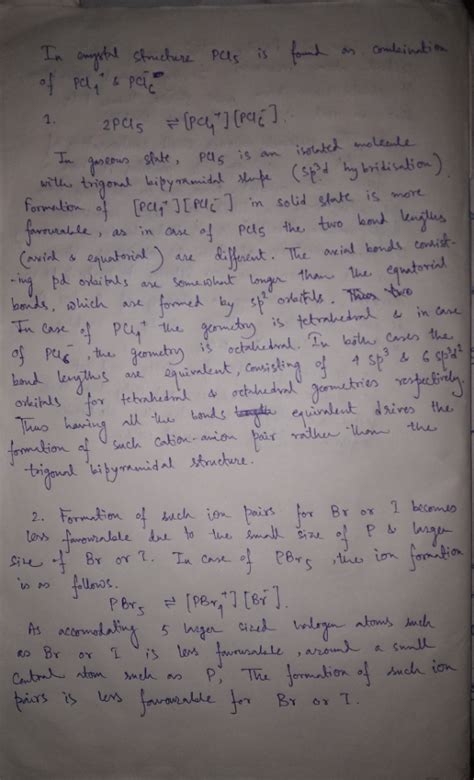 In crystal structure PCl5 is found as combination
of PCl4+ & PCl6-
1. 2PCl5 ⇌ [PCl4+][PCl6-].
In gaseous state, PCl5 is an isolated molecule
with trigonal bipyramidal shape (sp3d hybridisation)
Formation of [PCl4+][PCl6-] in solid state is more
favourable, as in case of PCl5 the two bond lengths
(axial & equatorial) are different. The axial bonds consist-
-ing pd orbitals are somewhat longer than the equatorial
bonds, which are formed by sp2 orbitals.
In case of PCl4+ the geometry is tetrahedral & in case
of PCl6-, the geometry is octahedral. In both cases the
bond lengths are equivalent, consisting of 4 sp3 & 6 sp3d2
orbitals for tetrahedral & octahedral geometries respectively.
Thus having all the bonds equivalent drives the
formation of such cation-anion pair rather than the
trigonal bipyramidal structure.
2. Formation of such ion pairs for Br or I becomes
less favourable due to the small size of P & larger
size of Br or I. In case of PBr5, the ion formation
is as follows.
PBr5 ⇌ [PBr4+][Br-].
As accomodating 5 larger sized halogen atoms such
as Br or I is less favourable, around a small
central atom such as P, The formation of such ion
pairs is less favourable for Br or I.